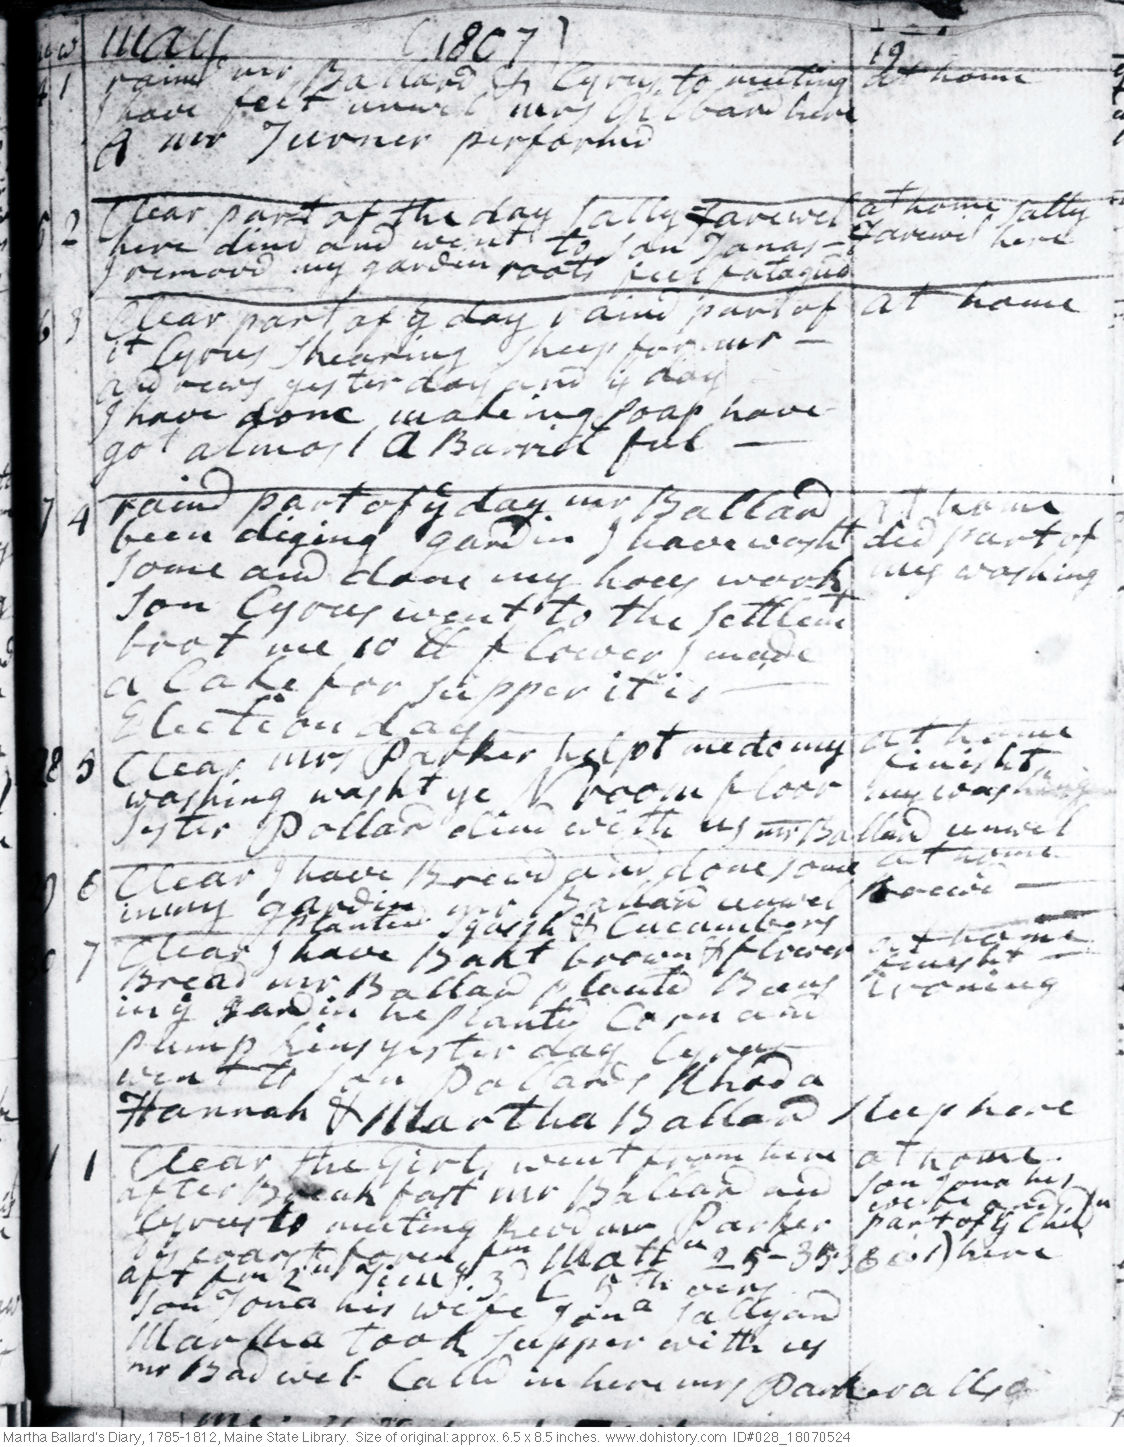 May (1807) 19
4 1 raind mr Ballard & Cyrus to meeting at home
I have felt unwel mrs Gilbard here
A mr Turner performd
2 Clear part of the day Sally Farewel at home Sally
here dind and went to Son Jonas - Farewel here
I removd my gardin roots feel fatagud
6 3 Clear part of ÿ day raind part of at home
it Cyrus Shearing Sheep for mr -
andrews yesterday and ÿ day
I have done makeing Soap have
got almost A Barriel ful -
7 4 raind part of ÿ day mr Ballard at home
been diging gardin I have washt did part of
Some and done my hous work my washing
Son Cyrus went to the Settlemt
brot me 10 lb flower I made
a Cake for Supper it is
Election day
28 5 Clear mrs Parker helpt me do my at home
washing washt ye N room floor finisht
my washing
Syster Pollard dind with us mr Ballard unwel
6 Clear I have Brewd and done some at home
in my gardin mr Ballard unwel brewd -
Planted Squash & Cucumbers
7 Clear I have Bakt brown & flower at home
Bread mr Ballard planted Beens finisht -
in ÿ gardin he Planted Corn and ironing
pumpkins yesterday Cyrus
went to Son Pollards Rhoda
Hannah & Martha Ballard Sleep here
1 1 Clear the Girls went from here at home.
after Breakfast mr Ballard and Son Jona his
Cyrus to meeting Revd mr Parker wife and
part of ÿ Child
foren fm Matt 25-35:36 here
aft fm 2nd Tim 3d C vers
Son Jona his wife Jona Sally and
Martha took Supper with us
mr Badweb Calld in here mrs Parker allso
Martha Ballard's Diary, 1785-1812, Maine State Library. Size of original: approx. 6.5 x 8.5 inches. www.dohistory.com ID#028_18070524